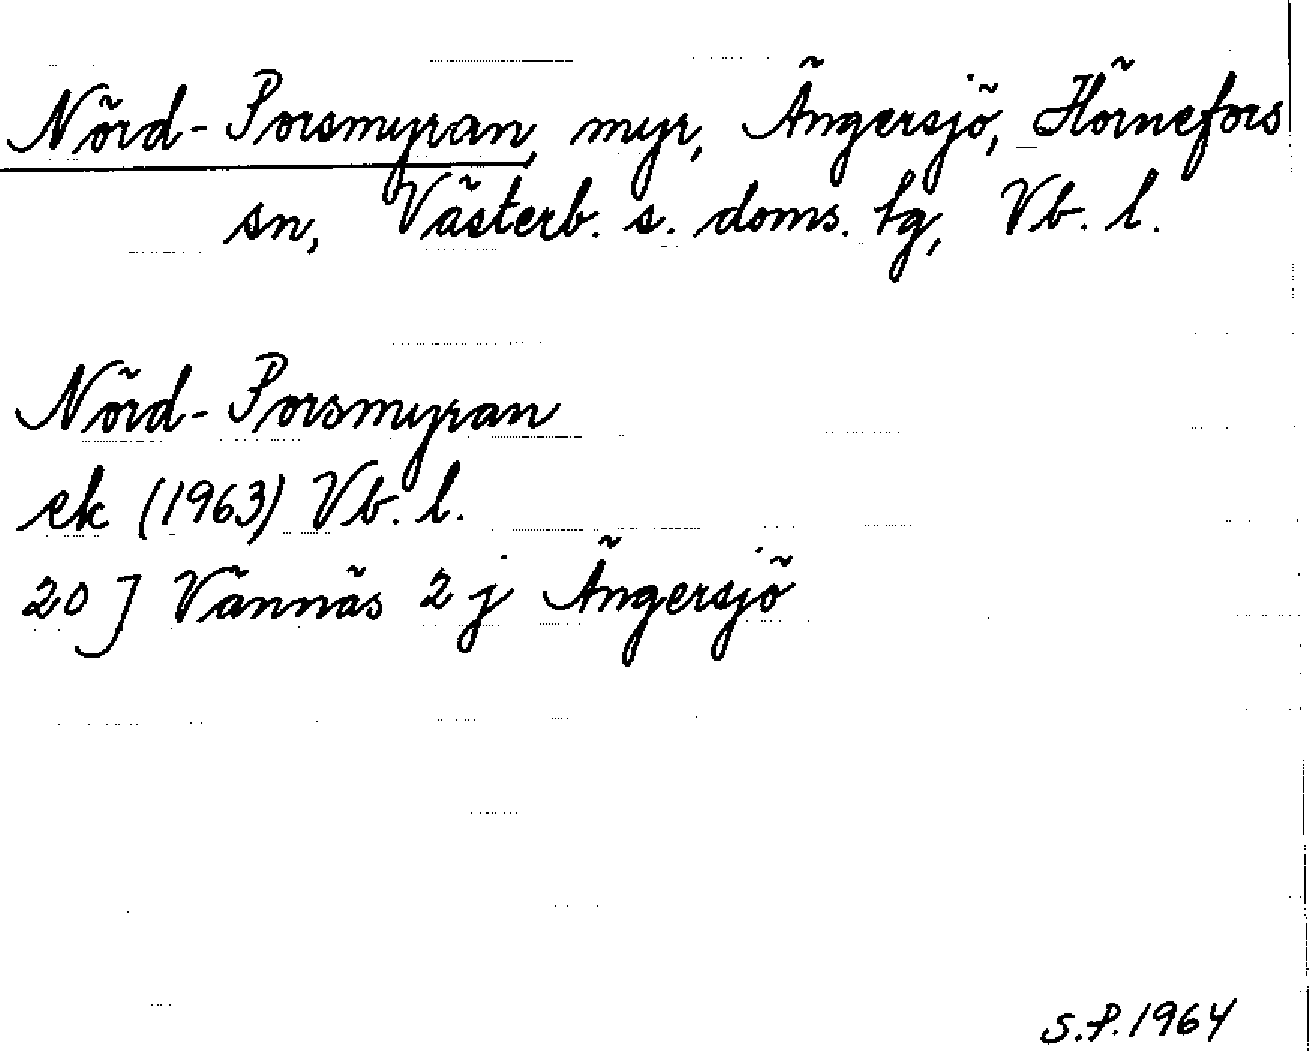 Nörd-Porsmyran, myr, Ängersjö, Hörnefors
sn, Västerb. s. doms. tg, Vb. l.
Nörd-Porsmyran
ek (1963) Vb. l.
20 J Vännäs 2 j Ängersjö
S.P. 1964